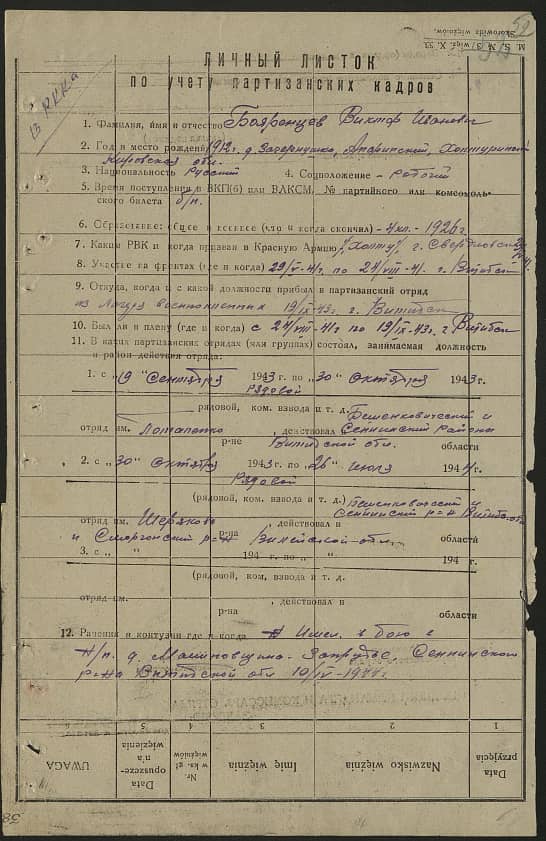 52
M. S. № 3/więz. X. 53.
Skorowidz więźniów.
В РККА
ЛИЧНЫЙ ЛИСТОК
по учету партизанских кадров
1. Фамилия, имя и отчество Бояренцев Виктор Иванович
2. Год и место рождения 1912 г. д. Загарнушка, Опаринский,
Кировская обл.
3. Национальность Русский 4. Соцположение - Рабочий
5. Время поступления в ВКП(б) или ВЛКСМ, № партийного или комсомоль-
ского билета б/п.
6. Образование: общее и военное (что и когда окончил) - 4 кл. - 1926 г.
7. Каким РВК и когда призван в Красную Армию г. Свердловск
8. Участие на фронтах (где и когда) 29/V-41г. по 24/VIII-41. г. Витебск
9. Откуда, когда и с какой должности прибыл в партизанский отряд
из лагеря военнопленных 19/IX-43г. г. Витебск
10. Был ли в плену (где и когда) с 24/VIII-41г по 19/IX-43г. г Витебск
11. В каких партизанских отрядах (или группах) состоял, занимаемая должность
и район действия отряда:
1. с "19" Сентября 1943 г. по "30" Октября 1943 г.
Рядовой
рядовой, ком. взвода и т. д. Бешенковический и
отряд им. Потапенко, действовал Сеннинский Района
р-не Витебской обл. области
2. с "30" Октября 1943 г. по "26" Июля 1944 г.
Рядовой
(рядовой, ком. взвода и т. д.) Бешенковический и
отряд им. , действовал в Сеннинский р-н Витебс. обл
и Сморгонский р-н Вилейской обл. области
3. с " " 194 г. по " " 194 г.
(рядовой, ком. взвода и т. д.
отряд им. , действовал в
р-на области
12. Ранения и контузии где и когда Имел в бою в
н/п. д. Малиновщина - Запрудье, Сеннинского
р-на Витебской обл 10/IV-1944г.
1 2 3 4 5 6
Data przyjęcia
Nazwisko więźnia
Imię więźnia
Nr. w ks. gł. więźniów
Data opuszczenia więzienia
UWAGA
38